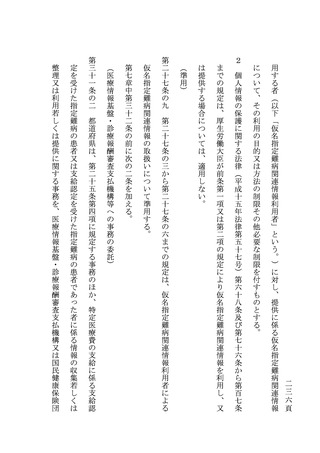 二三六頁
用する者（以下「仮名指定難病関連情報利用者」という。）に対し、提供に係る仮名指定難病関連情報
について、その利用の目的又は方法の制限その他必要な制限を付すものとする。
２　個人情報の保護に関する法律（平成十五年法律第五十七号）第六十八条及び第七十六条から第百七条
までの規定は、厚生労働大臣が前条第一項又は第二項の規定により仮名指定難病関連情報を利用し、又
は提供する場合については、適用しない。
（準用）
第二十七条の九　第二十七条の三から第二十七条の六までの規定は、仮名指定難病関連情報利用者による
仮名指定難病関連情報の取扱いについて準用する。
第七章中第三十二条の前に次の二条を加える。
（医療情報基盤・診療報酬審査支払機構等への事務の委託）
第三十一条の二　都道府県は、第二十五条第四項に規定する事務のほか、特定医療費の支給に係る支給認
定を受けた指定難病の患者又は支給認定を受けた指定難病の患者であった者に係る情報の収集若しくは
整理又は利用若しくは提供に関する事務を、医療情報基盤・診療報酬審査支払機構又は国民健康保険団